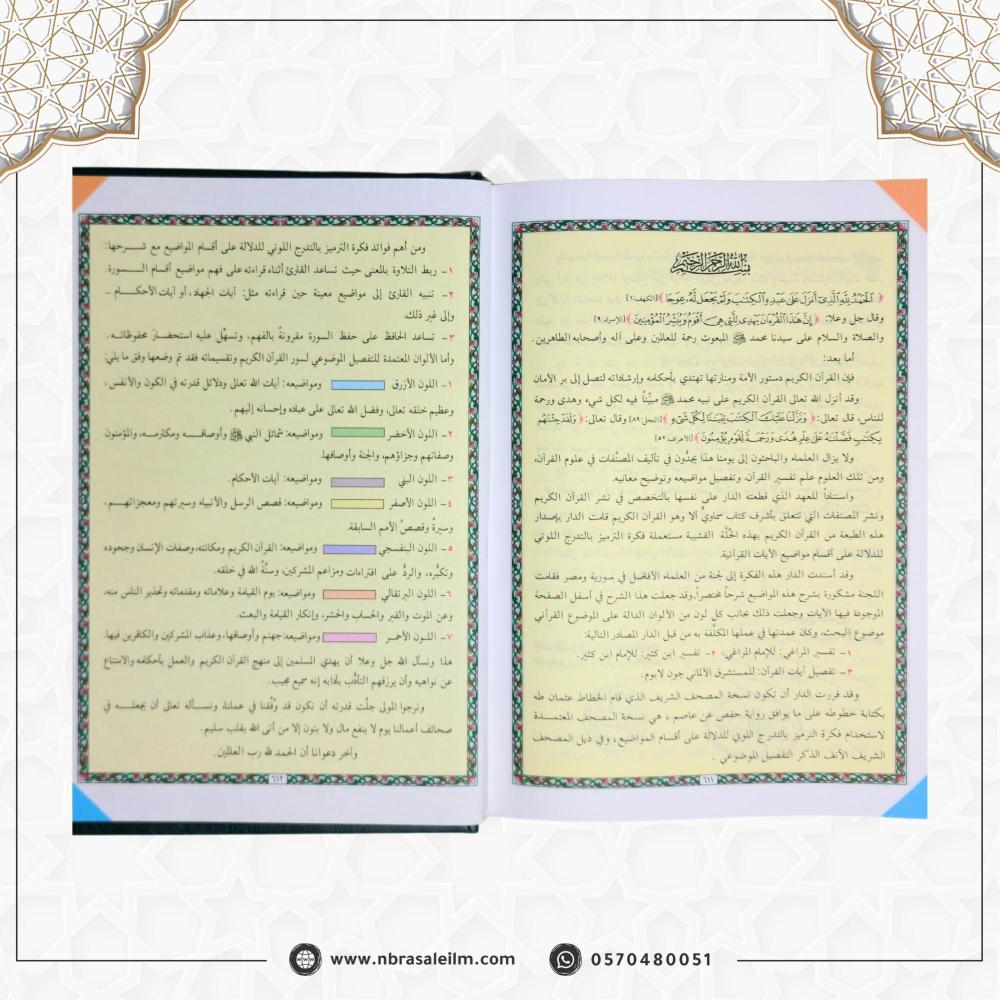 بسم الله الرحمن الرحيم
﴿ الْحَمْدُ لِلَّهِ الَّذِي أَنزَلَ عَلَىٰ عَبْدِهِ الْكِتَابَ وَلَمْ يَجْعَل لَّهُ عِوَجَا ﴾ [الكهف: ١]
وقال جل وعلا: ﴿ إِنَّ هَٰذَا الْقُرْءَانَ يَهْدِي لِلَّتِي هِيَ أَقْوَمُ وَيُبَشِّرُ الْمُؤْمِنِينَ ﴾ [الإسراء: ٩]
والصلاة والسلام على سيدنا محمد ﷺ المبعوث رحمة للعالمين وعلى آله وأصحابه الطاهرين.
أما بعد:
فإن القرآن الكريم دستور الأمة ومنارتها تهتدي بأحكامه وإرشاداته لتصل إلى بر الأمان
وقد أنزل الله تعالى القرآن الكريم على نبيه محمد ﷺ مبيِّناً فيه لكل شيء وهدى ورحمة
للناس، قال تعالى: ﴿ وَنَزَّلْنَا عَلَيْكَ الْكِتَابَ تِبْيَانًا لِّكُلِّ شَيْءٍ ﴾ [النحل: ٨٩] وقال تعالى: ﴿ وَلَقَدْ جِئْنَٰهُم
بِكِتَٰبٍ فَصَّلْنَٰهُ عَلَىٰ عِلْمٍ هُدًى وَرَحْمَةً لِّقَوْمٍ يُؤْمِنُونَ ﴾ [الأعراف: ٥٢]
ولا يزال العلماء والباحثون إلى يومنا هذا يجدُّون في تأليف المصنَّفات في علوم القرآن،
ومن تلك العلوم علم تفسير القرآن، وتفصيل مواضيعه وتوضيح معانيه.
واستناداً للعهد الذي قطعته الدار على نفسها بالتخصص في نشر القرآن الكريم
ونشر المصنفات التي تتعلق بأشرف كتاب سماويٍّ ألا وهو القرآن الكريم قامت الدار بإصدار
هذه الطبعة من القرآن الكريم بهذه الحُلَّة القشيبة مستعملة فكرة الترميز بالتدرج اللوني
للدلالة على أقسام مواضيع الآيات القرآنية.
وقد أسندت الدار هذه الفكرة إلى لجنة من العلماء الأفاضل في سورية ومصر فقامت
اللجنة مشكورة بشرح هذه المواضيع شرحاً مختصراً، وقد جعلت هذا الشرح في أسفل الصفحة
الموجودة فيها الآيات وجعلت ذلك بجانب كل لون من الألوان الدالة على الموضوع القرآني
موضوع البحث، وكان عمدتها في عملها المكلَّفة به من قبل الدار المصادر التالية:
١- تفسير المراغي: للإمام المراغي. ٢- تفسير ابن كثير: للإمام ابن كثير.
٣- تفصيل آيات القرآن: للمستشرق الألماني جون لابوم.
وقد قررت الدار أن تكون نسخة المصحف الشريف الذي قام الخطاط عثمان طه
بكتابة خطوطه على ما يوافق رواية حفص عن عاصم، هي نسخة المصحف المعتمدة
لاستخدام فكرة الترميز بالتدرج اللوني للدلالة على أقسام المواضيع، وفي ذيل المصحف
الشريف الآنف الذكر التفصيل الموضوعي.
٦١١
ومن أهم فوائد فكرة الترميز بالتدرج اللوني للدلالة على أقسام المواضيع مع شرحها:
١- ربط التلاوة بالمعنى حيث تساعد القارئ أثناء قراءته على فهم مواضيع أقسام السورة.
٢- تنبيه القارئ إلى مواضيع معينة حين قراءته مثل: آيات الجهاد، أو آيات الأحكام –
وإلى غير ذلك.
٣- تساعد الحافظ على حفظ السورة مقرونةً بالفهم، وتسهِّل عليه استحضارَ محفوظاته.
وأما الألوان المعتمدة للتفصيل الموضوعي لسور القرآن الكريم وتقسيماته فقد تم وضعها وفق ما يلي:
١- اللون الأزرق ومواضيعه: آيات الله تعالى ودلائل قدرته في الكون والأنفس،
وعظيم خلقه تعالى، وفضل الله تعالى على عباده وإحسانه إليهم.
٢- اللون الأخضر ومواضيعه: شمائل النبي ﷺ وأوصافه ومكارمه، والمؤمنون
وصفاتهم وجزاؤهم، والجنة وأوصافها.
٣- اللون البني ومواضيعه: آيات الأحكام.
٤- اللون الأصفر ومواضيعه: قصص الرسل والأنبياء وسيرتهم ومعجزاتهم،
وسيرةُ وقصصُ الأمم السابقة.
٥- اللون البنفسجي ومواضيعه: القرآن الكريم ومكانته، وصفات الإنسان وجحوده
وتكبُّره، والردُّ على افتراءات ومزاعم المشركين، وسنَّةُ الله في خلقه.
٦- اللون البرتقالي ومواضيعه: يوم القيامة وعلاماته ومقدماته وتحذير الناس منه،
وعن الموت والقبر والحساب والحشر، وإنكار القيامة والبعث.
٧- اللون الأحمر ومواضيعه: جهنم وأوصافها، وعذاب المشركين والكافرين فيها.
هذا ونسأل الله جل وعلا أن يهدي المسلمين إلى منهج القرآن الكريم والعمل بأحكامه والامتناع
عن نواهيه وأن يرزقهم التأدُّب بآدابه إنه سميع مجيب.
ونرجوا المولى جلَّت قدرته أن نكون قد وُفِّقنا في عملنا، ونسأله تعالى أن يجعله في
صحائف أعمالنا يوم لا ينفع مال ولا بنون إلا من أتى الله بقلب سليم.
وآخر دعوانا أن الحمد لله رب العالمين.
٦١٢
www.nbrasaleilm.com
0570480051